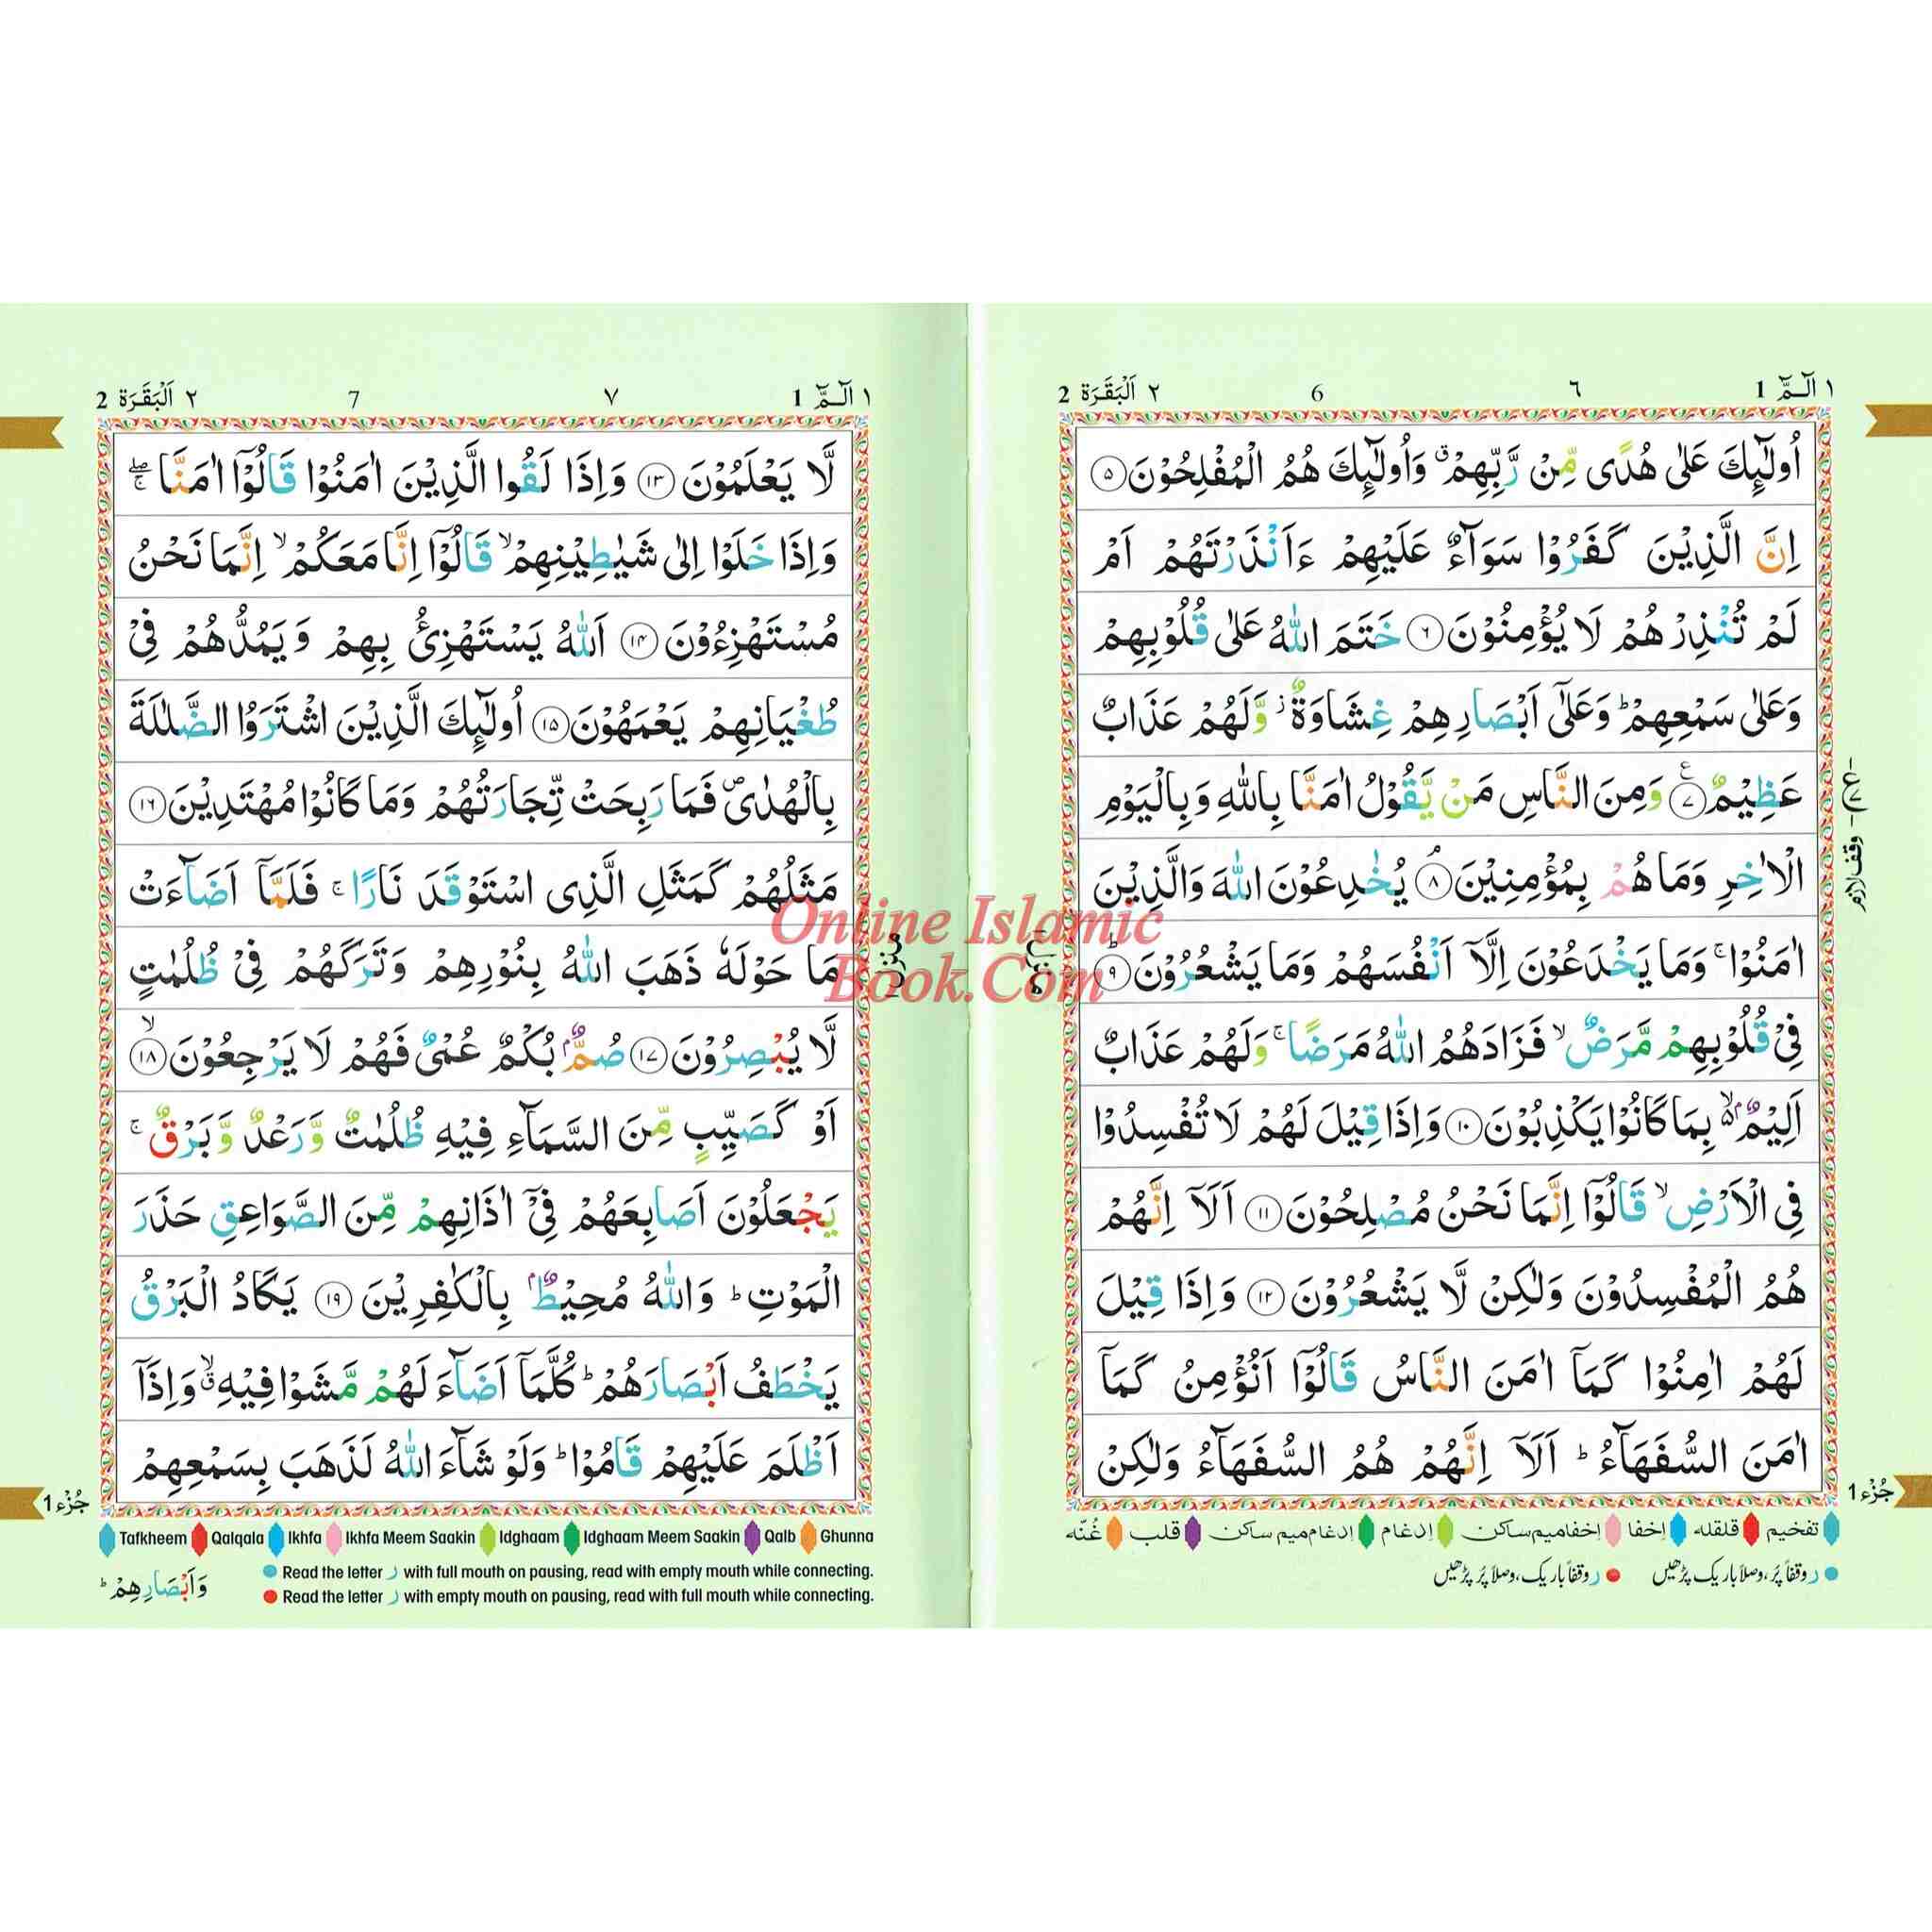 ١ الٓـمّٓ 1
٦
6
٢ اَلْبَقَرَة 2
اُولٰٓئِكَ عَلٰى هُدًى مِّنْ رَّبِّهِمْ ۗ وَاُولٰٓئِكَ هُمُ الْمُفْلِحُوْنَ ۝٥
اِنَّ الَّذِيْنَ كَفَرُوْا سَوَآءٌ عَلَيْهِمْ ءَاَنْذَرْتَهُمْ اَمْ
لَمْ تُنْذِرْهُمْ لَا يُؤْمِنُوْنَ ۝٦ خَتَمَ اللّٰهُ عَلٰى قُلُوْبِهِمْ
وَعَلٰى سَمْعِهِمْ ؕ وَعَلٰٓى اَبْصَارِهِمْ غِشَاوَةٌ ز وَّلَهُمْ عَذَابٌ
عَظِيْمٌ ۝٧ وَمِنَ النَّاسِ مَنْ يَّقُوْلُ اٰمَنَّا بِاللّٰهِ وَبِالْيَوْمِ
الْاٰخِرِ وَمَا هُمْ بِمُؤْمِنِيْنَ ۝٨ يُخٰدِعُوْنَ اللّٰهَ وَالَّذِيْنَ
اٰمَنُوْا ۚ وَمَا يَخْدَعُوْنَ اِلَّآ اَنْفُسَهُمْ وَمَا يَشْعُرُوْنَ ۝٩
فِيْ قُلُوْبِهِمْ مَّرَضٌ ۙ فَزَادَهُمُ اللّٰهُ مَرَضًا ۚ وَلَهُمْ عَذَابٌ
اَلِيْمٌ ۢ ۙ بِمَا كَانُوْا يَكْذِبُوْنَ ۝١٠ وَاِذَا قِيْلَ لَهُمْ لَا تُفْسِدُوْا
فِى الْاَرْضِ ۙ قَالُوْٓا اِنَّمَا نَحْنُ مُصْلِحُوْنَ ۝١١ اَلَآ اِنَّهُمْ
هُمُ الْمُفْسِدُوْنَ وَلٰكِنْ لَّا يَشْعُرُوْنَ ۝١٢ وَاِذَا قِيْلَ
لَهُمْ اٰمِنُوْا كَمَآ اٰمَنَ النَّاسُ قَالُوْٓا اَنُؤْمِنُ كَمَآ
اٰمَنَ السُّفَهَآءُ ؕ اَلَآ اِنَّهُمْ هُمُ السُّفَهَآءُ وَلٰكِنْ
وقف لازم
جُزْء 1
تفخیم قلقلہ اِخفا اِخفامیم ساکن اِدغام اِدغام میم ساکن قلب غُنّہ
ر وقفاً پُر، وصلاً باریک پڑھیں ر وقفاً باریک، وصلاً پُر پڑھیں
١ الٓـمّٓ 1
٧
7
٢ اَلْبَقَرَة 2
لَّا يَعْلَمُوْنَ ۝١٣ وَاِذَا لَقُوا الَّذِيْنَ اٰمَنُوْا قَالُوْٓا اٰمَنَّا ۖۚ
وَاِذَا خَلَوْا اِلٰى شَيٰطِيْنِهِمْ ۙ قَالُوْٓا اِنَّا مَعَكُمْ ۙ اِنَّمَا نَحْنُ
مُسْتَهْزِءُوْنَ ۝١٤ اَللّٰهُ يَسْتَهْزِئُ بِهِمْ وَيَمُدُّهُمْ فِيْ
طُغْيَانِهِمْ يَعْمَهُوْنَ ۝١٥ اُولٰٓئِكَ الَّذِيْنَ اشْتَرَوُا الضَّلٰلَةَ
بِالْهُدٰى ۪ فَمَا رَبِحَتْ تِّجَارَتُهُمْ وَمَا كَانُوْا مُهْتَدِيْنَ ۝١٦
مَثَلُهُمْ كَمَثَلِ الَّذِى اسْتَوْقَدَ نَارًا ۚ فَلَمَّآ اَضَآءَتْ
مَا حَوْلَهٗ ذَهَبَ اللّٰهُ بِنُوْرِهِمْ وَتَرَكَهُمْ فِيْ ظُلُمٰتٍ
لَّا يُبْصِرُوْنَ ۝١٧ صُمٌّ ۢ بُكْمٌ عُمْيٌ فَهُمْ لَا يَرْجِعُوْنَ ۙ ۝١٨
اَوْ كَصَيِّبٍ مِّنَ السَّمَآءِ فِيْهِ ظُلُمٰتٌ وَّرَعْدٌ وَّبَرْقٌ ۚ
يَجْعَلُوْنَ اَصَابِعَهُمْ فِيْٓ اٰذَانِهِمْ مِّنَ الصَّوَاعِقِ حَذَرَ
الْمَوْتِ ؕ وَاللّٰهُ مُحِيْطٌ ۢ بِالْكٰفِرِيْنَ ۝١٩ يَكَادُ الْبَرْقُ
يَخْطَفُ اَبْصَارَهُمْ ؕ كُلَّمَآ اَضَآءَ لَهُمْ مَّشَوْا فِيْهِ ۙۗ وَاِذَآ
اَظْلَمَ عَلَيْهِمْ قَامُوْا ؕ وَلَوْ شَآءَ اللّٰهُ لَذَهَبَ بِسَمْعِهِمْ
جُزْء 1
Tafkheem Qalqala Ikhfa Ikhfa Meem Saakin Idghaam Idghaam Meem Saakin Qalb Ghunna
Read the letter ر with full mouth on pausing, read with empty mouth while connecting.
Read the letter ر with empty mouth on pausing, read with full mouth while connecting.
وَاَبْصَارِهِمْ ؕ
Online Islamic
Book.Com